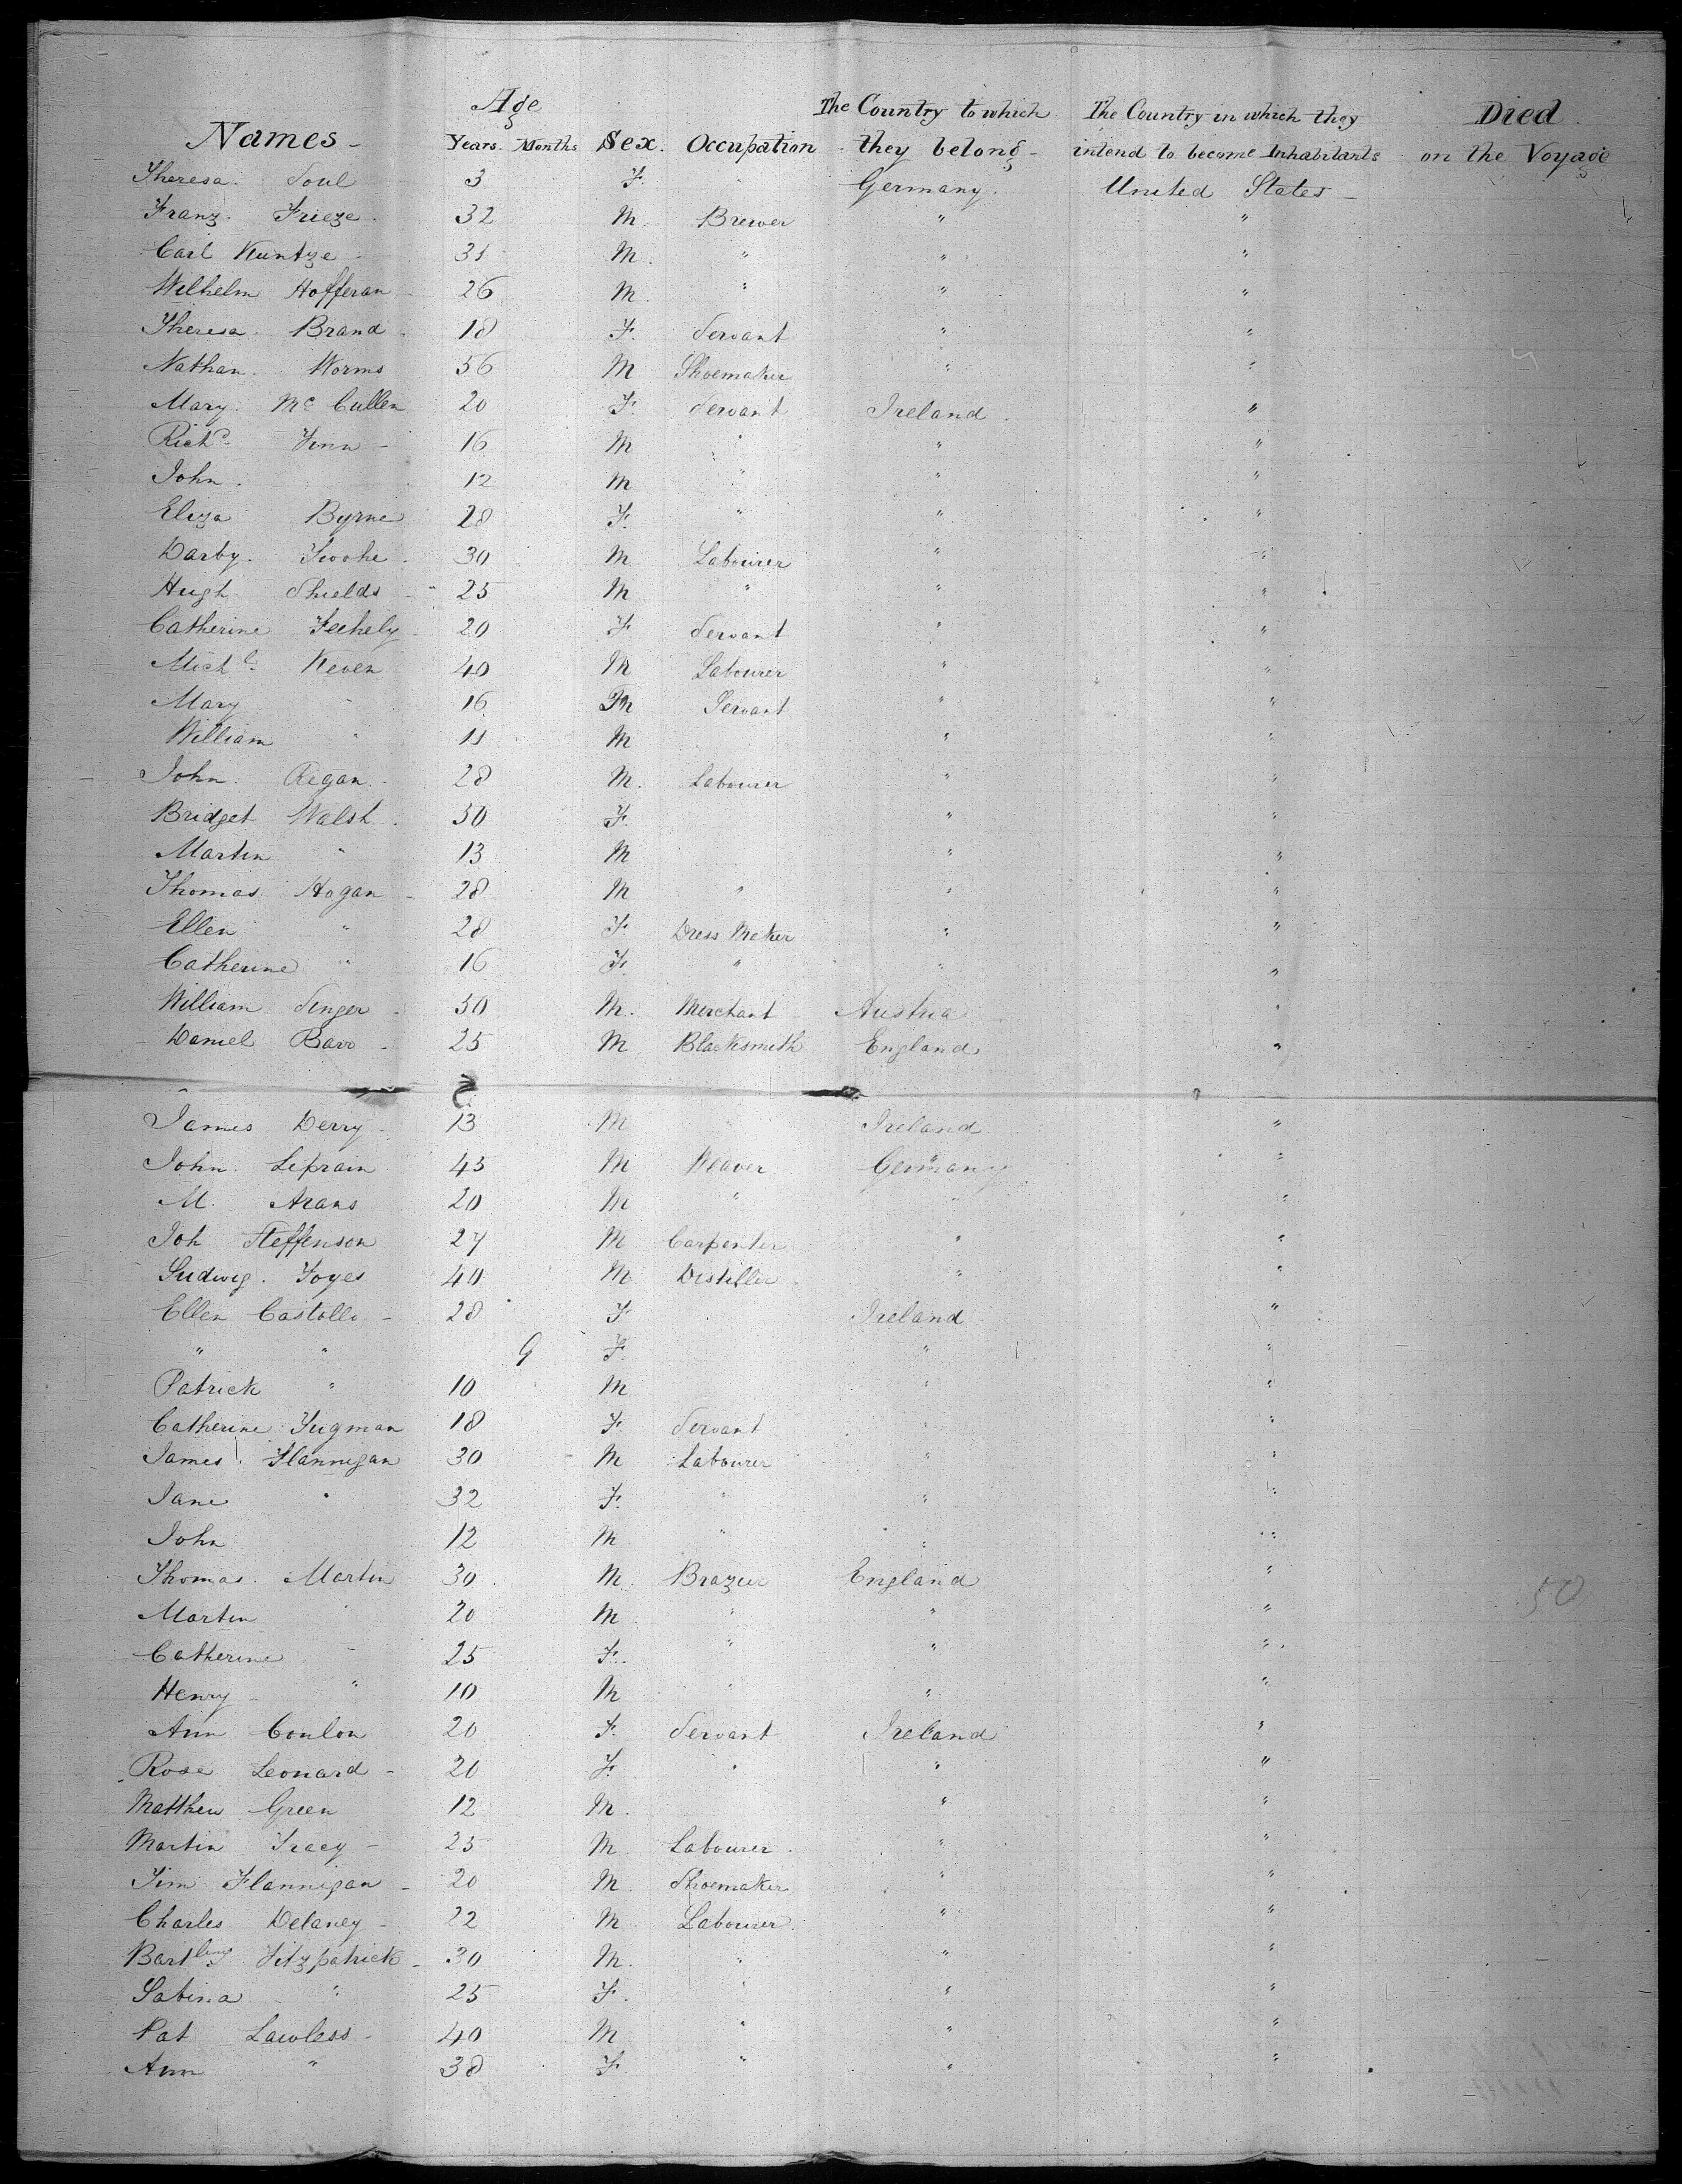 Names - Age Years. Months Sex. Occupation The Country to which they belong - The Country in which they intend to become Inhabitants Died on the Voyage
Theresa. Soul 3 F. Germany. United States -
Franz. Frieze. 32 M. Brewer " "
Carl Kuntze - 31 M. " " "
Wilhelm Hofferan - 26 M. " " "
Theresa. Brand. 18 F. Servant " "
Nathan. Worms 36 M Shoemaker " "
Mary. Mc Cullen 20 F. Servant Ireland. "
Richd. Finn - 16 M " " "
John. 12 M " " "
Eliza Byrne 28 F. " " "
Darby. 30 M Labourer " "
Hugh. Shields - 25 M " " "
Catherine 20 F Servant " "
Michl. Keven 40 M Labourer " "
Mary " 16 M Servant " "
William " 11 M " "
John. Regan. - 28 M. Labourer " "
Bridget Walsh. 30 F. " "
Martin " 13 M " "
Thomas Hogan - 28 M " " "
Ellen " 28 F. Dress Maker " "
Catherine " 16 F. " " "
William Singer - 30 M. Merchant Austria "
Daniel Barr - 25 M Blacksmith England "
James Derry - 13 M " Ireland "
John. Leprain 45 M Weaver Germany "
M. Arans 20 M " " "
Joh Steffenson 27 M Carpenter " "
Ludwig. Foyes 40 M Distiller. " "
Ellen Castollo - 28 F Ireland "
" " 9 F. " "
Patrick " 10 M " "
Catherine Fugman 18 F. Servant " "
James. Flannigan 30 M Labourer " "
Jane " 32 F. " " "
John 12 M " " "
Thomas. Martin 30 M. Brazier England "
Martin " 20 M " " " 50
Catherine " 25 F. " " "
Henry - " 10 M " " "
Ann Conlon 20 F. Servant Ireland "
Rose Leonard - 20 F. " " "
Matthew Green 12 M. " "
Martin Tracy - 25 M Labourer. " "
Jim Flannigan - 20 M. Shoemaker " "
Charles Delaney - 22 M. Labourer. " "
Fitzpatrick - 30 M. " " "
Sabina " 25 F. " " "
Pat Lawless - 40 M " " "
Ann " 38 F. " " "